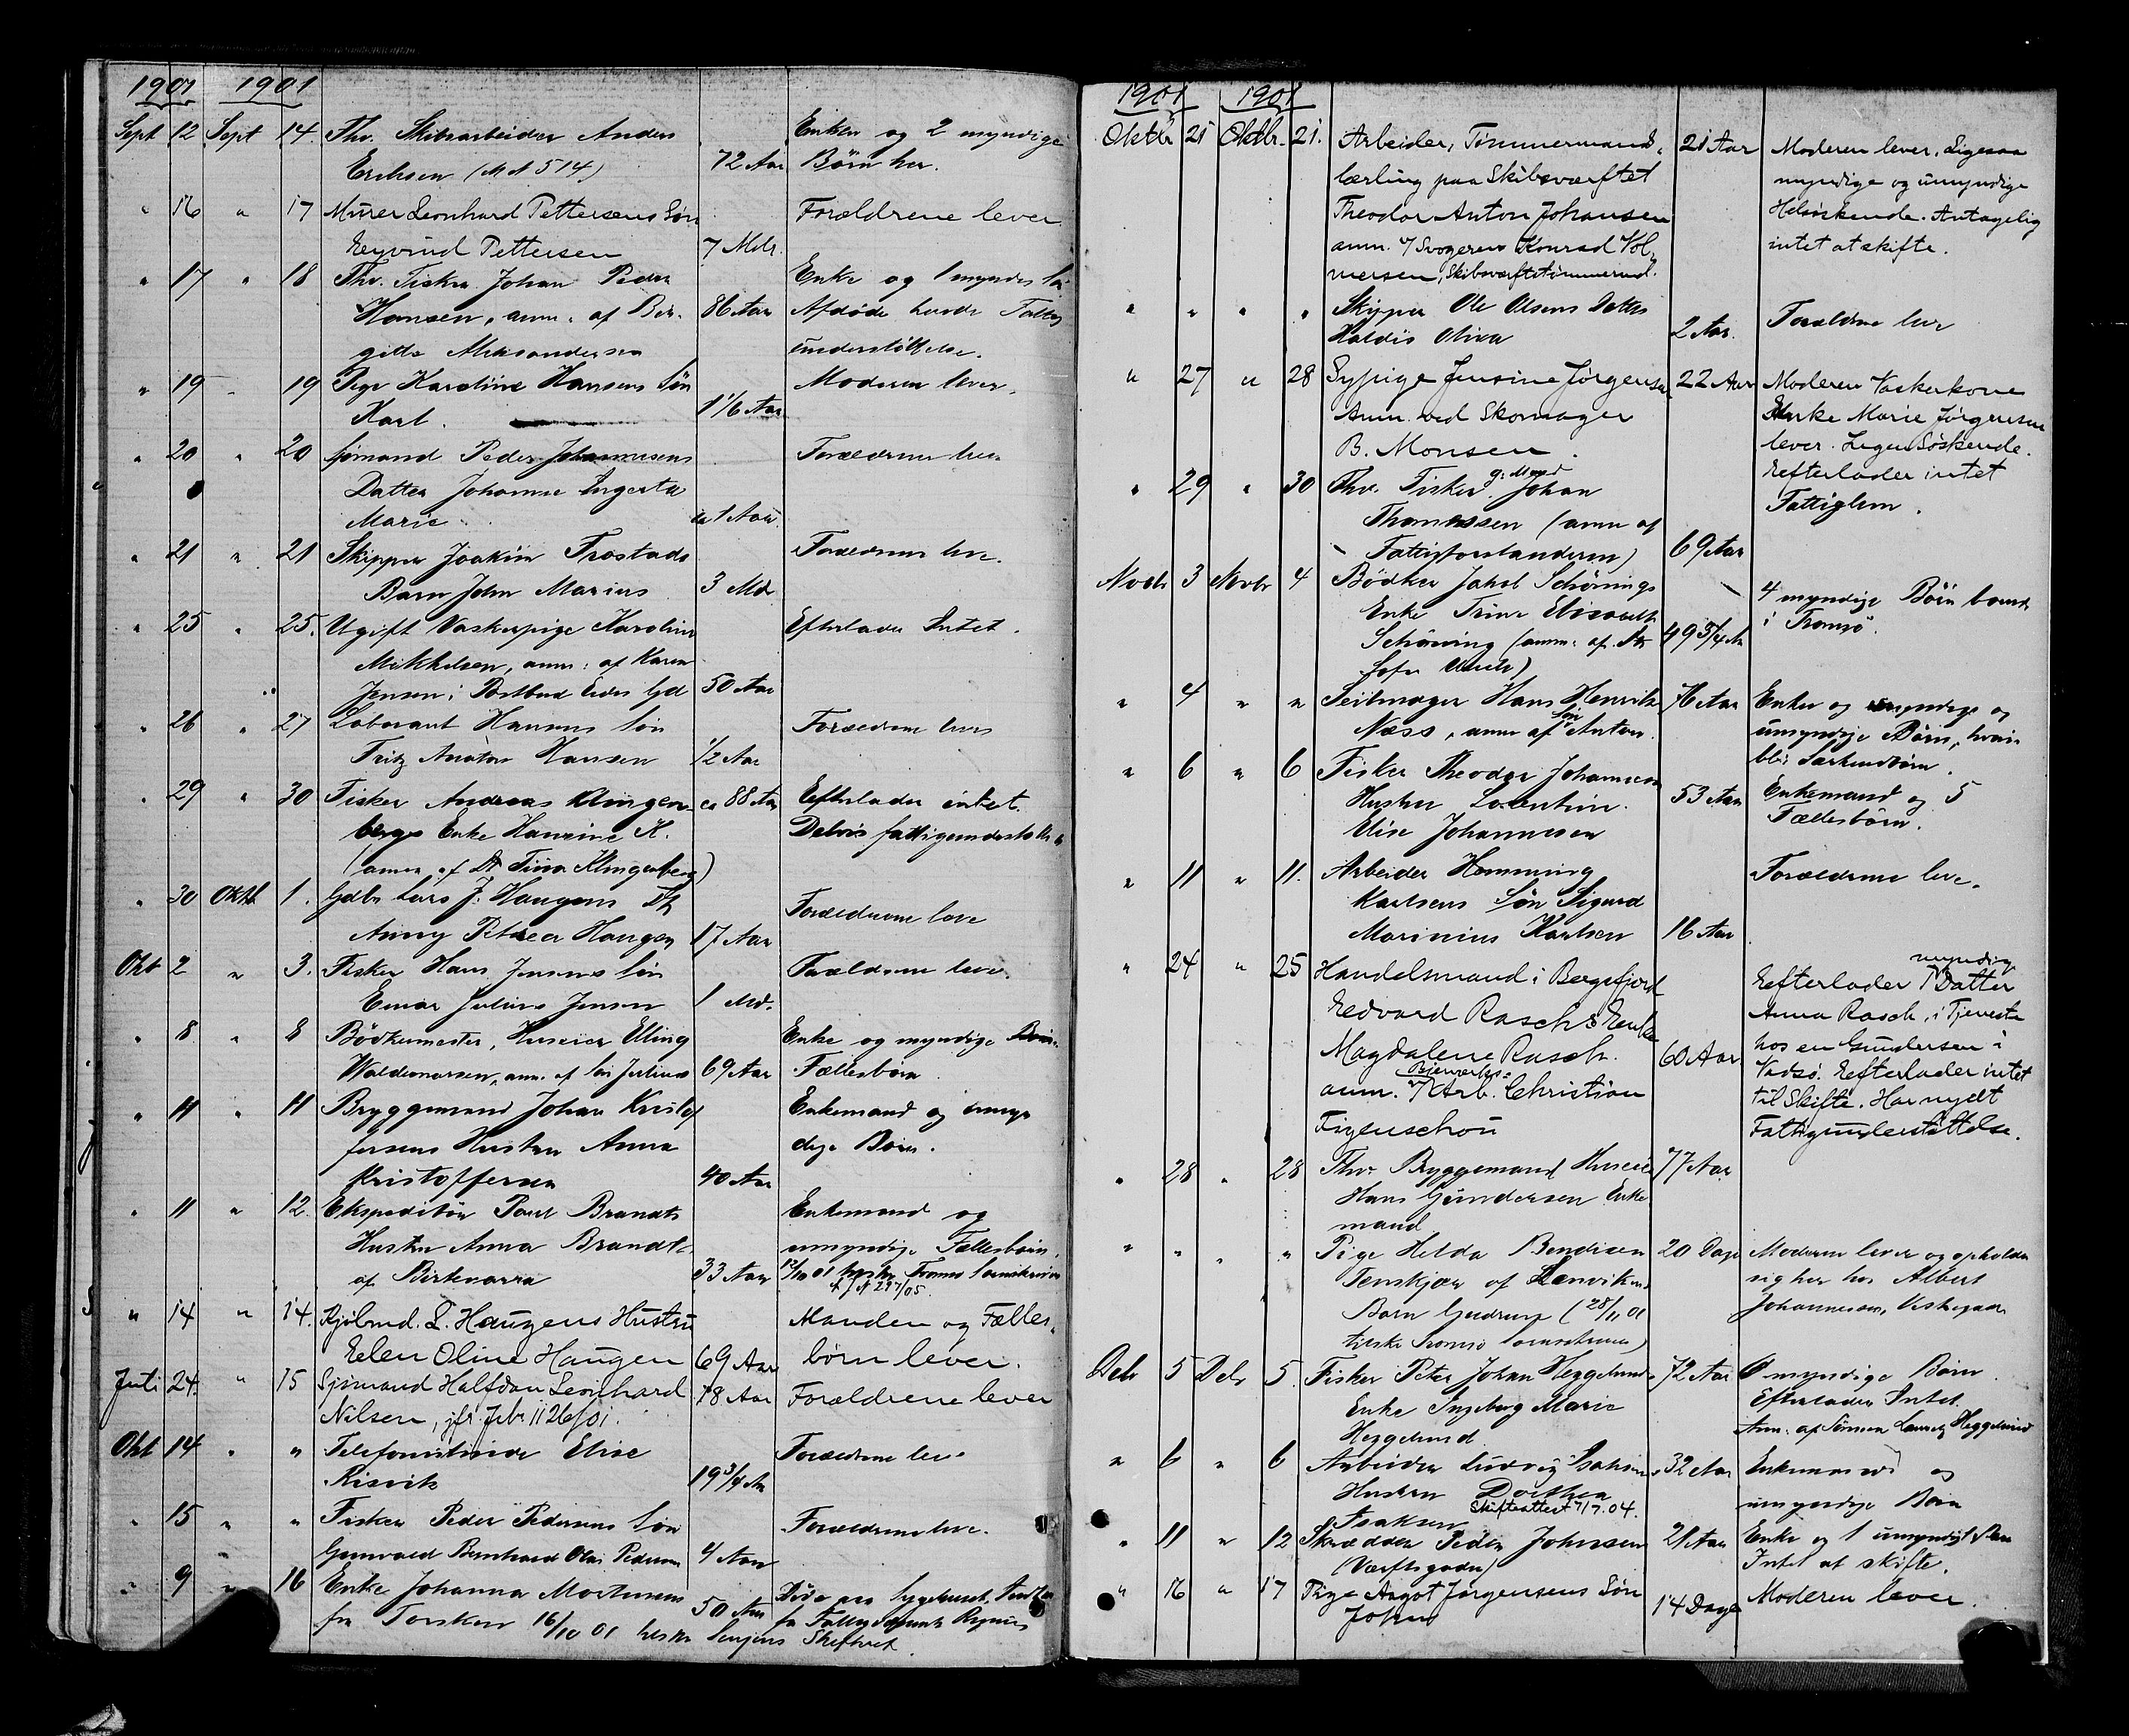 1901 1901
Sept 12 Sept 14. Thv. Skibsarbeider Anders Enken og 2 myndige
Eriksen (M A 514) 72 Aar Børn her.
" 16 " 17 Murer Leonhard Pettersens Søn Forældrene lever
Eyvind Pettersen 7 Mdr.
" 17 " 18 Thv. Fisker Johan Peder Enke og 1 myndig
Hansen, anm. af Bir- 86 Aar Afdøde havde Fattig
gitte Aleksandersen understøttelse.
" 19 " 19 Pige Karoline Hansens Søn Moderen lever.
Karl. 1 1/6 Aar
" 20 " 20 Sømand Peder Johannesens Forældrene lever
Datter Johanne Ingerta
Marie ca 1 Aar
" 21 " 21 Skipper Joakim Trostads Forældrene leve.
Barn John Marius 3 Mdr
" 25 " 25. Ugift Vaskerpige Karoline Efterlader Intet.
Mikkelsen, anm. af Karen
Jensen i Postbud Eides Gd 50 Aar
" 26 " 27 Laborant Hansens Søn Forældrene lever
Fritz Anton Hansen 1/2 Aar
" 29 " 30 Fisker Andreas Klingen ca 88 Aar Efterlader intet.
bergs Enke Hansine K. Delvis fattigunderstøttet
(anm. af Dt. Tina Klingenberg)
" 30 Oktb 1. Gdbr Lars J. Haugens Dtr Forældrene leve
Anny Petrea Haugen 17 Aar
Okt 2 " 3. Fisker Hans Jensens Søn Forældrene leve.
Einar Julius Jensen 1 Md.
" 8 " 8 Bødkermester, Huseier Elling Enke og myndige
Waldemarsen, anm. af Søn Julius 69 Aar Fællesbørn
" 11 " 11 Bryggemand Johan Kristof Enkemand og umyn
fersens Hustru Anna dige Børn.
Kristoffersen 40 Aar
" 11 " 12. Ekspeditør Paul Brandts Enkemand og
Hustru Anna Brandt umyndige Fællesbørn.
af Birtavarre 33 Aar 12/10 01 Tromsø Sorenskriver
297/05.
" 14 " 14. Kjøbmd. L. Haugens Hustru Manden og Fælles-
Ellen Oline Haugen 69 Aar børn lever.
Juli 24. " 15 Sjømand Halfdan Leonhard 18 Aar Forældrene lever
Nilsen, jfr. Jrb. 1126/01.
Okt 14 " " Telefonistinde Elise Forældrene lever
Risvik 19 3/4 Aar
" 15 " " Fisker Peder Pedersens Søn Forældrene leve.
Gunvald Bernhard Olai Pedersen 4 Aar
" 9 " 16 Enke Johanna Mortensens Døde paa Sygehuset.
fra Torsken 50 Aar for Fattigvæsenets Regning
16/10 01 Senjens Skifteret.

1901 1901
Oktbr 21 Oktbr. 21. Arbeider, Tømmermands- 21 Aar Moderen lever. Ligesaa
lærling paa Skibsværftet myndige og umyndige
Theodor Anton Johansen Helsøskende. Antagelig
anm. v/ Svogeren Konrad Vol- intet at skifte.
mersen, Skibsværftstømmermd.
" " " " Skipper Ole Olsens Datter Forældrene lever
Haldis Oliva 2 Aar.
" 27 " 28 Sypige Jensine Jørgensen 22 Aar Moderen Vaskerkone
Anm. ved Skomager Enke Marie Jørgensen
B. Monsen. lever. Ingen Søskende.
Efterlader intet
Fattiglem.
" 29 " 30 Thv. Fisker g. Mand Johan
Thomassen (anm af
Fattigforstanderen) 69 Aar
Novbr 3 Novbr 4 Bødker Jakob Schønings 4 myndige Børn
Enke Trine Elisabeth i Tromsø.
Schøning (anm. af 49 3/4 Aar
Sofie Ulrich)
" 4 " " Seilmager Hans Henrik 76 Aar Enke og myndige og
Næss, anm af Søn Anton. umyndige Børn, hvori
bl. Særkuldbørn.
" 6 " 6 Fisker Theodor Johannesen Enkemand og 5
Hustru Lorentine 53 Aar Fællesbørn.
Elise Johannesen
" 11 " 11. Arbeider Hemming Forældrene leve.
Karlsens Søn Sigurd
Marinius Karlsen 16 Aar
" 24 " 25 Handelsmand i Bergsfjord Efterlader 1 myndig Datter
Edvard Rasch's Enke Anna Rasch, i Tjeneste
Magdalene Rasch. 60 Aar hos en Gundersen i
anm. v/ Arb. Christian Vadsø. Efterlader intet
Figenschou til Skifte. Har nydt
Fattigunderstøttelse.
" 28 " 28 Thv. Bryggemand Huseier 77 Aar
Hans Gundersen Enke
mand
" " " " Pige Helda Bendiksen 20 Dage Moderen lever og opholder
Tenskjær af Lenviken sig her hos Albert
Barn Gudrun (28/11 01 Johannesen, Vestregade
Tromsø Sorenskriver)
Debr 5 Debr 5. Fisker Peter Johan Heggelunds 72 Aar 6 myndige Børn
Enke Ingeborg Marie Efterlader Intet.
Heggelund Anm. af Sønnen Lauritz Heggelund
" 6 " 6 Arbeider Ludvig Isaksens 32 Aar Enkemand og
Hustru Dorthea umyndige Børn
Skifteattest 7/7. 04.
Isaksen
" 11 " 12 Skrædder Peder Johnsen 21 Aar Enke og 1 umyndigt Barn
(Værftsgaden) Intet at skifte.
" 16 " 17 Pige Aagot Jørgensens Søn 14 Dage Moderen lever.
Johan